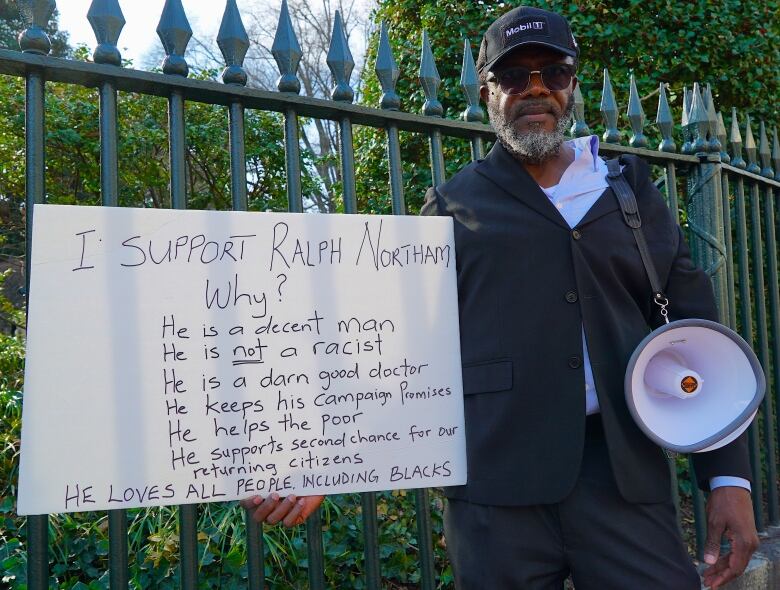 Mobil 1
I SUPPORT RALPH NORTHAM
Why?
He is a decent man
He is not a racist
He is a darn good doctor
He keeps his campaign Promises
He helps the poor
He supports second chance for our
returning citizens
HE LOVES ALL PEOPLE, INCLUDING BLACKS